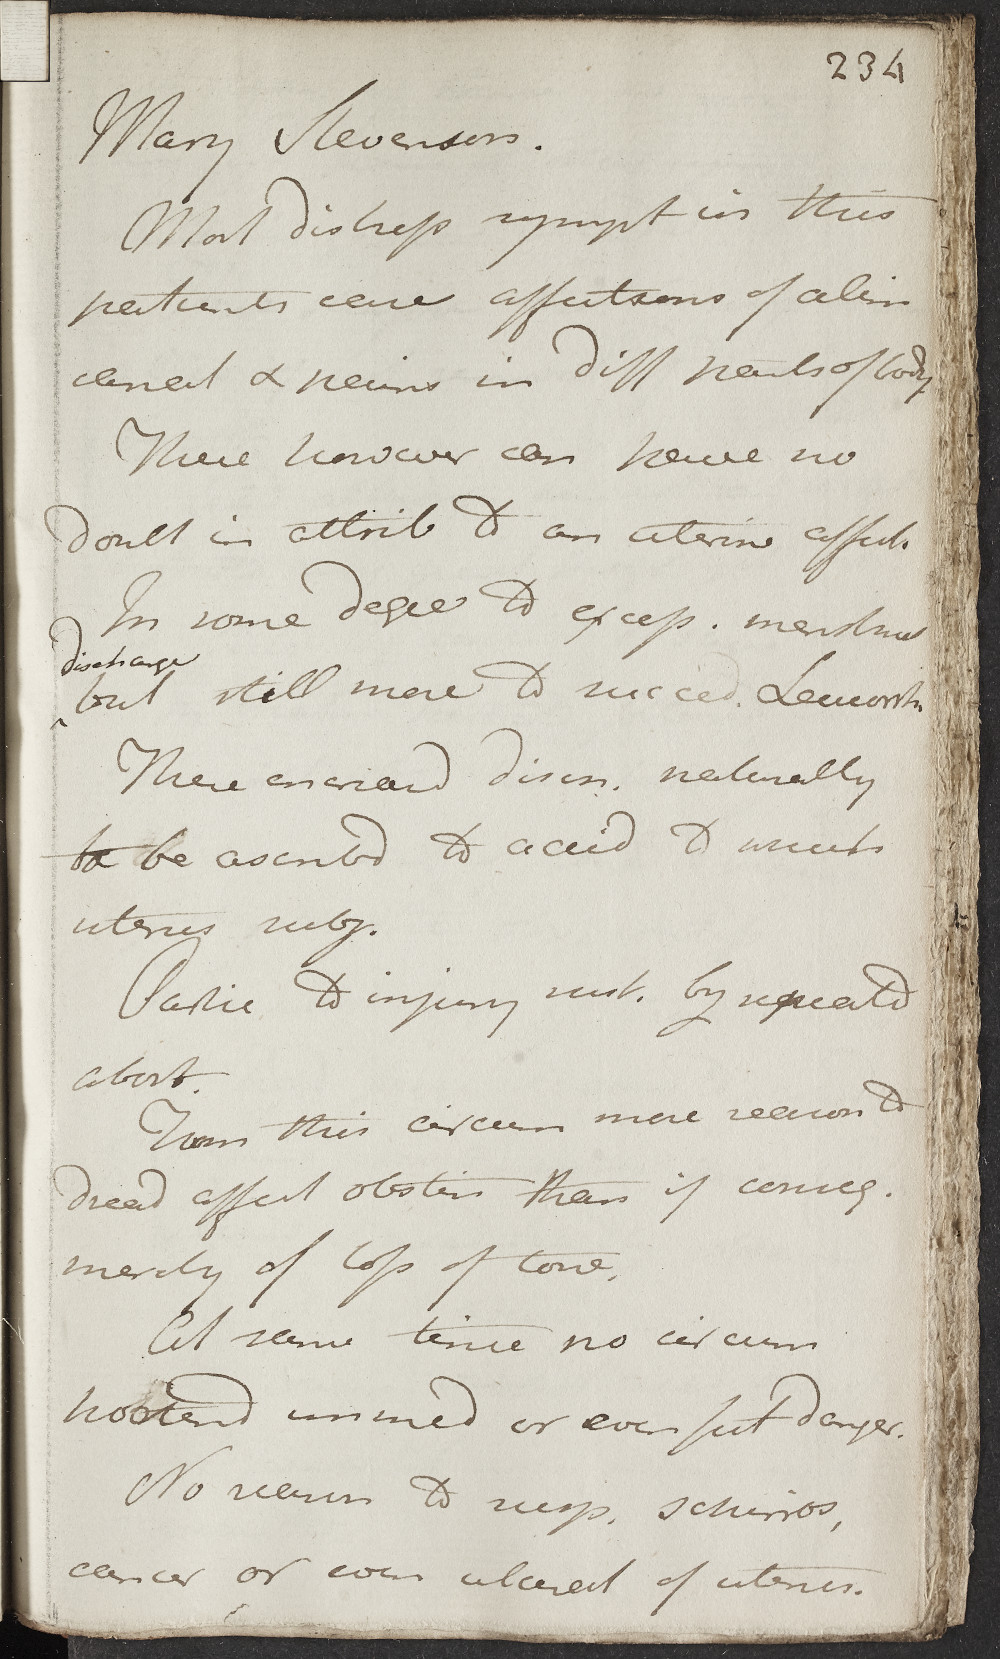 234
Mary Stevenson.
Most distress sympt in this
patients case affections of alim
canal & pains in diff parts of body
These however can have no
doubt in attrib to an uterine affect.
In some degree to excess. menstrual
discharge
but still more to succeed. Leucorrh.
These and disch. naturally
to be ascribed to acid to which
uterus subj.
Partic to injury sust. by repeated
abort.
From this circum more reason to
dread affect obstin than if conseq.
merely of loss of tone.
At same time no circum
portend immed or even fut danger.
No reason to susp. schirros,
cancer or even ulcerat of uterus.